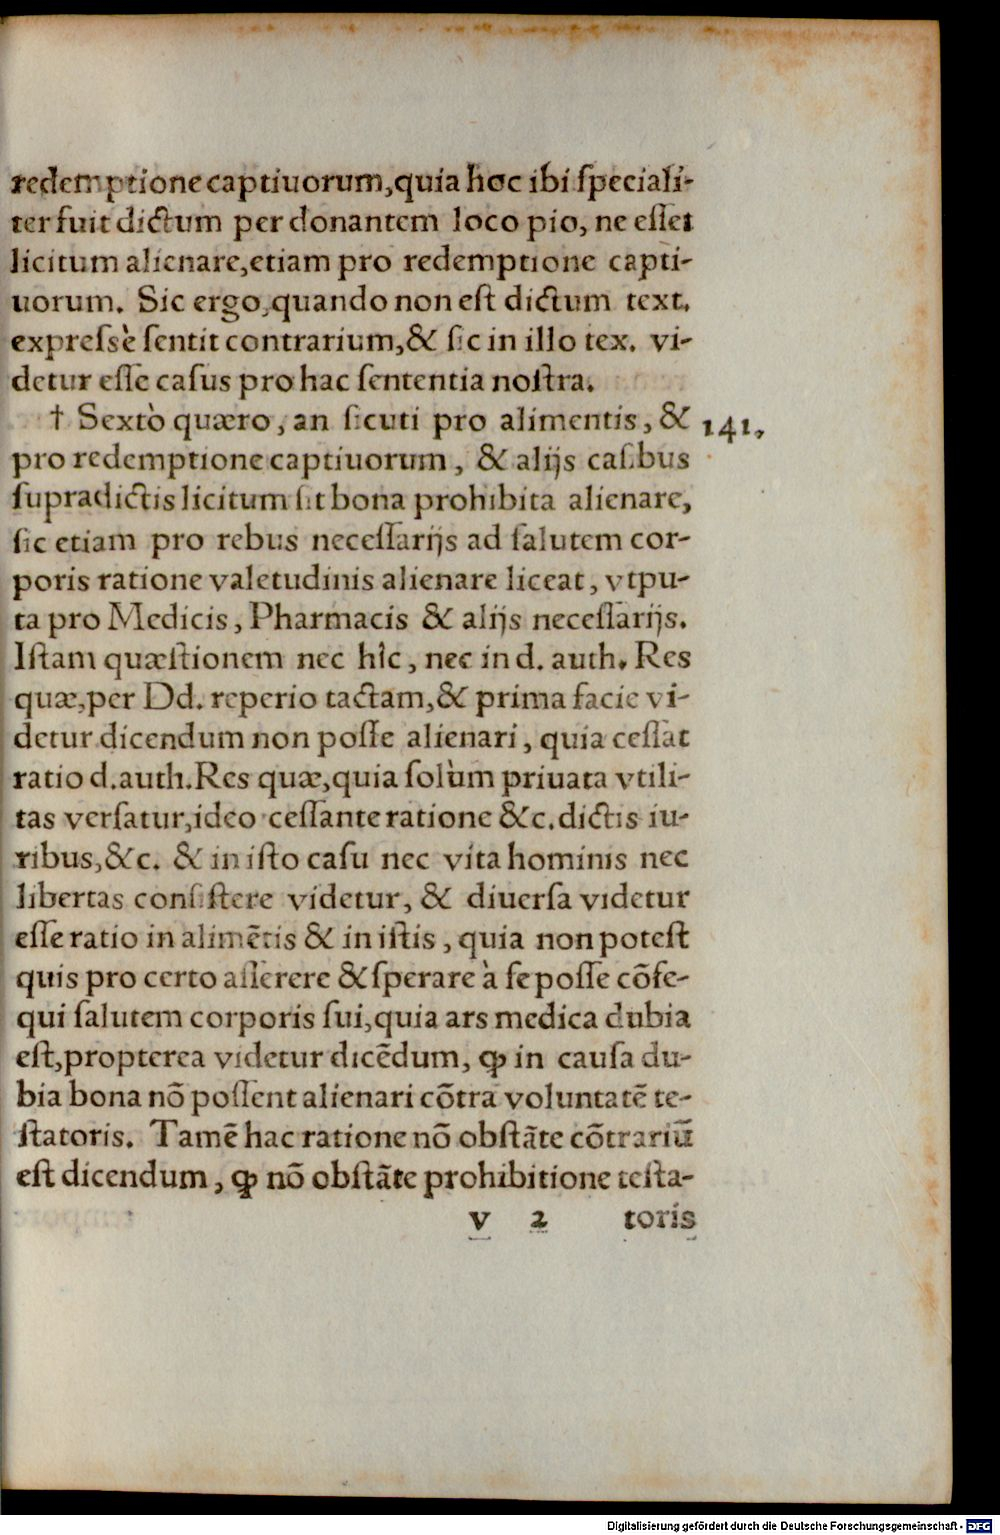 redemptione captiuorum, quia hoc ibi speciali-
ter fuit dictum per donantem loco pio, ne esset
licitum alienare, etiam pro redemptione capti-
uorum. Sic ergo, quando non est dictum text.
expressè sentit contrarium, & sic in illo tex. vi-
detur esse casus pro hac sententia nostra.
† Sextò quæro, an sicuti pro alimentis, & 141,
pro redemptione captiuorum, & alijs casibus
supradictis licitum sit bona prohibita alienare,
sic etiam pro rebus necessarijs ad salutem cor-
poris ratione valetudinis alienare liceat, vtpu-
ta pro Medicis, Pharmacis & alijs necessarijs.
Istam quæstionem nec hîc, nec in d. auth. Res
quæ, per Dd. reperio tactam, & prima facie vi-
detur dicendum non posse alienari, quia cessat
ratio d. auth. Res quæ, quia solùm priuata vtili-
tas versatur, ideo cessante ratione &c. dictis iu-
ribus, &c. & in isto casu nec vita hominis nec
libertas consistere videtur, & diuersa videtur
esse ratio in alimẽtis & in istis, quia non potest
quis pro certo asserere & sperare à se posse cõse-
qui salutem corporis sui, quia ars medica dubia
est, propterea videtur dicẽdum, ꝙ in causa du-
bia bona nõ possent alienari cõtra voluntatẽ te-
statoris. Tamẽ hac ratione nõ obstãte cõtrariũ
est dicendum, ꝙ nõ obstãte prohibitione testa-
v 2 toris
Digitalisierung gefördert durch die Deutsche Forschungsgemeinschaft - DFG